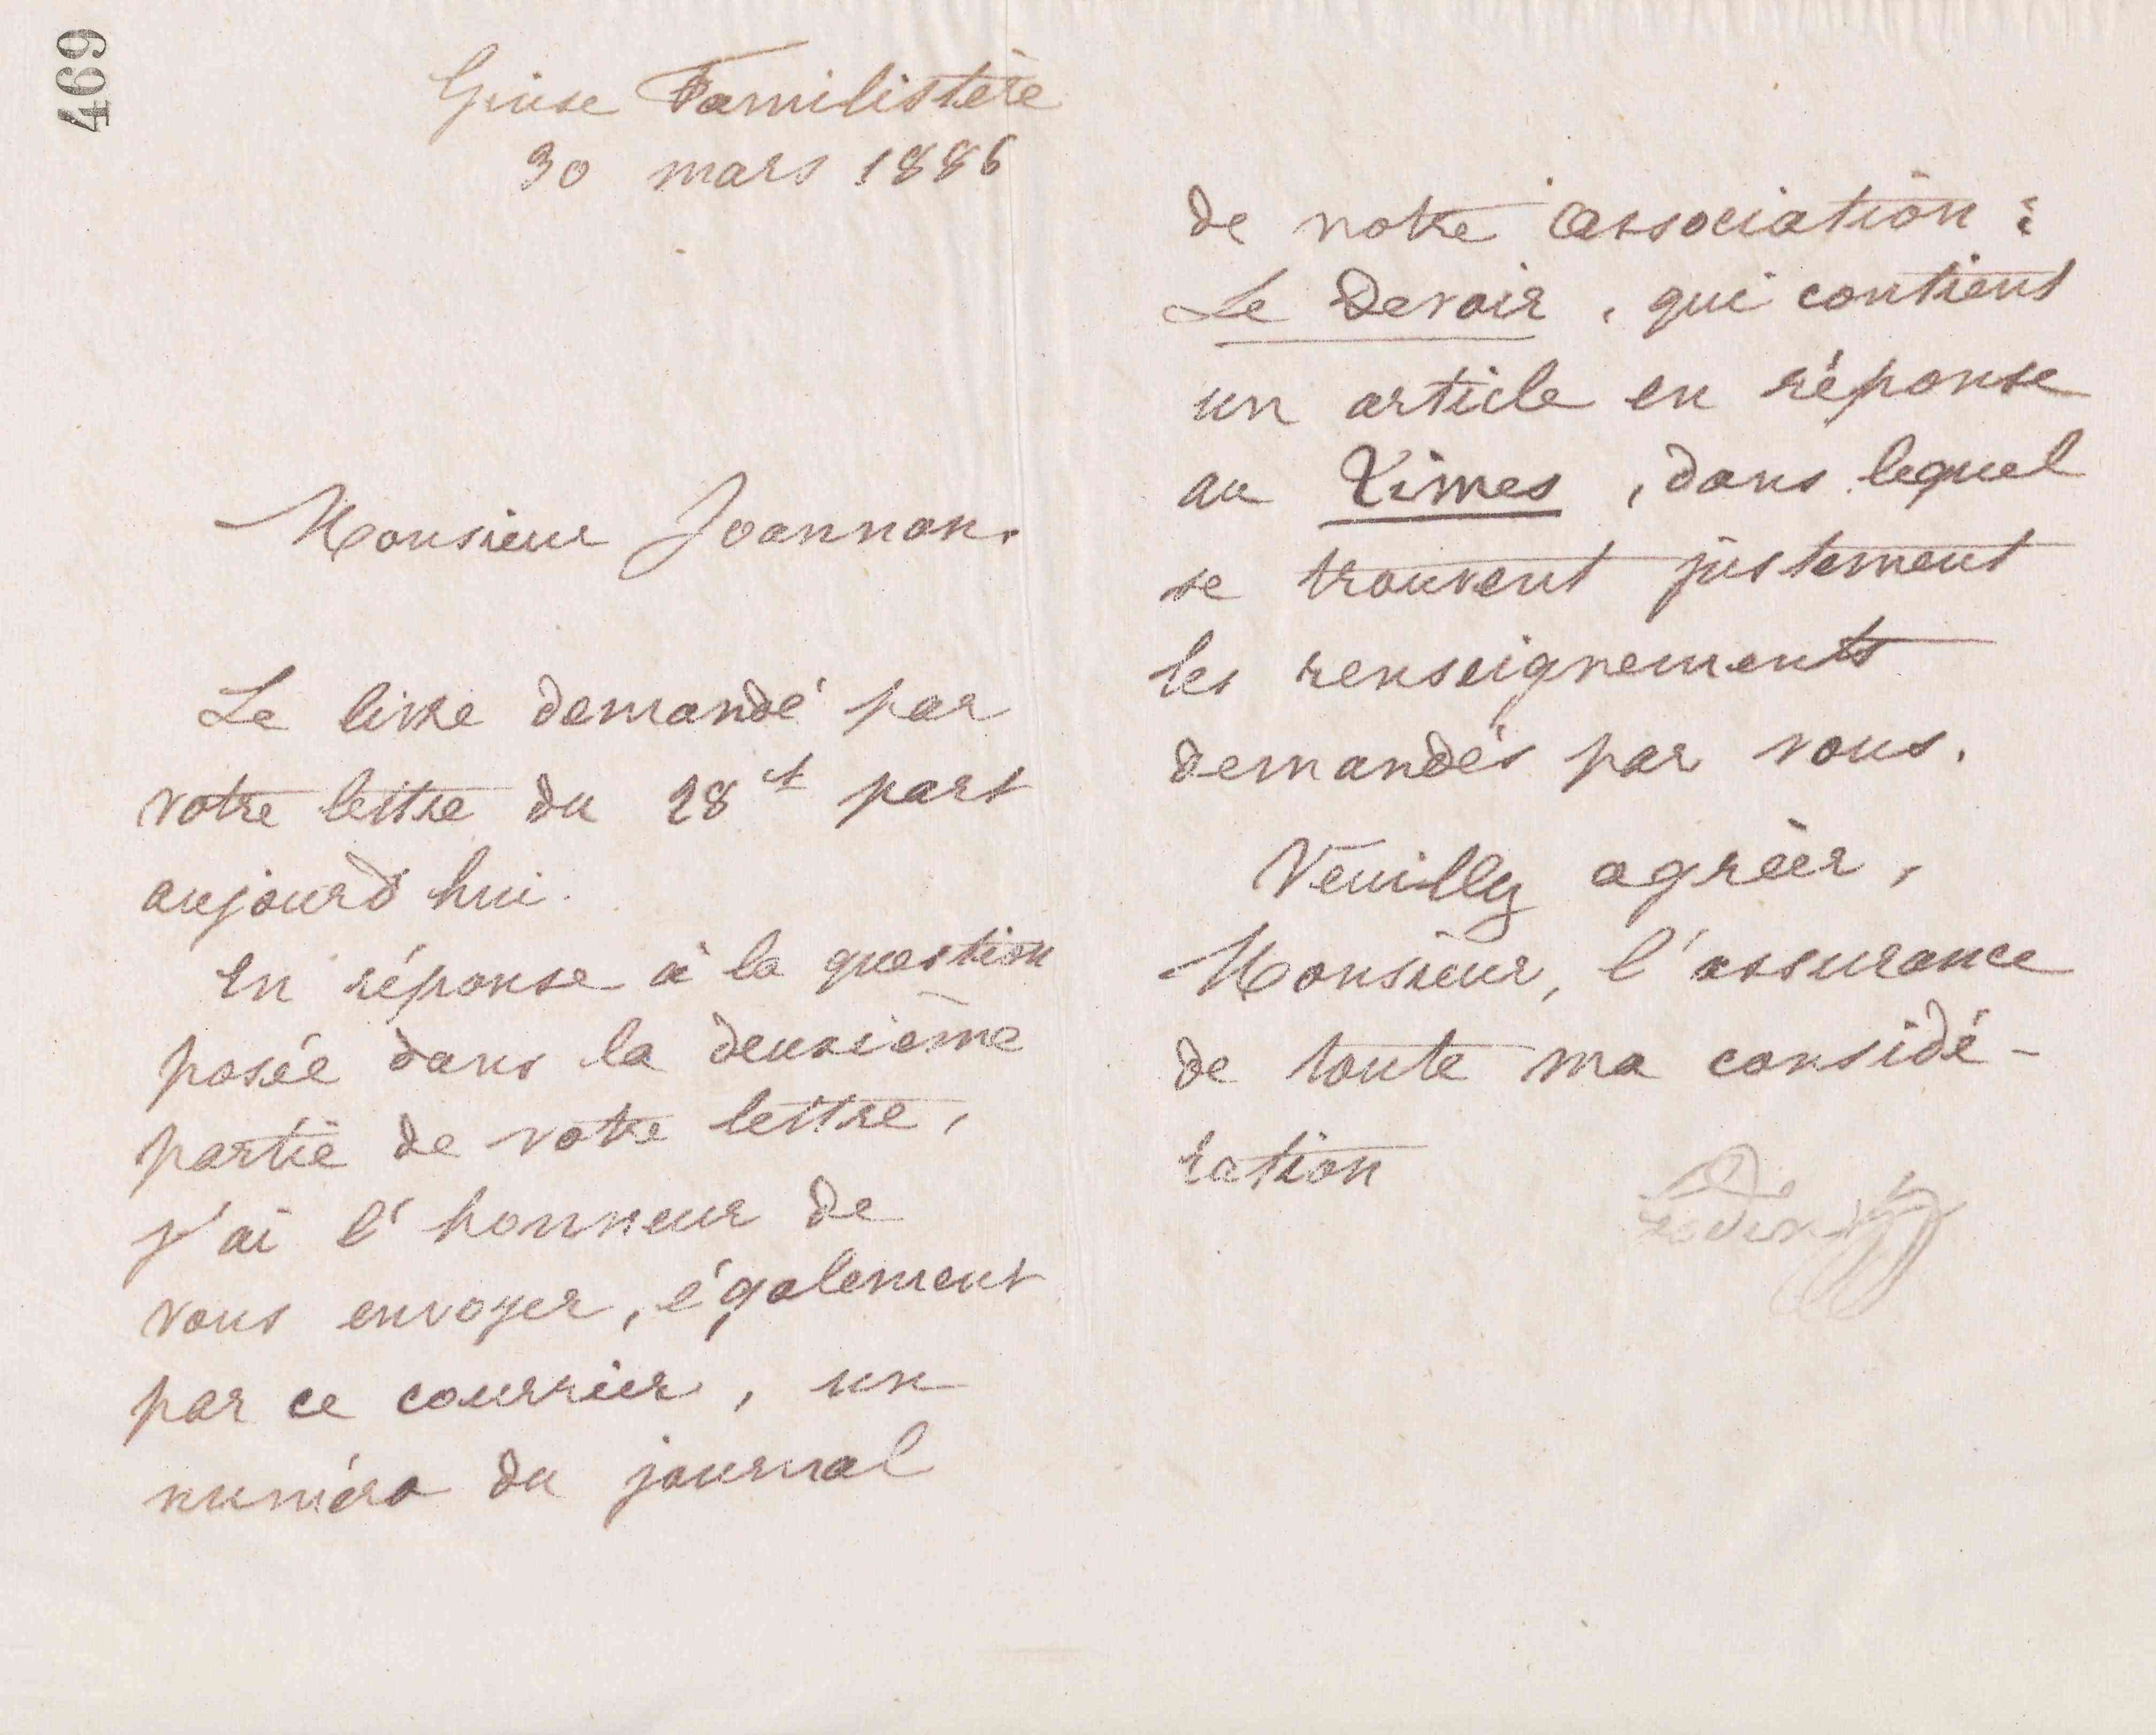 469
Guise Familistère
30 mars 1886
Monsieur Joannon.
Le livre demandé par
votre lettre du 28 ct part
aujourd'hui.
En réponse à la question
posée dans la deuxième
partie de votre lettre,
j'ai l'honneur de
vous envoyer, également
par ce courrier, un
numéro du journal
de notre association :
Le Devoir, qui contient
un article en réponse
au Times, dans lequel
se trouvent justement
les renseignements
demandés par vous.
Veuillez agréer,
Monsieur, l'assurance
de toute ma considé-
ration